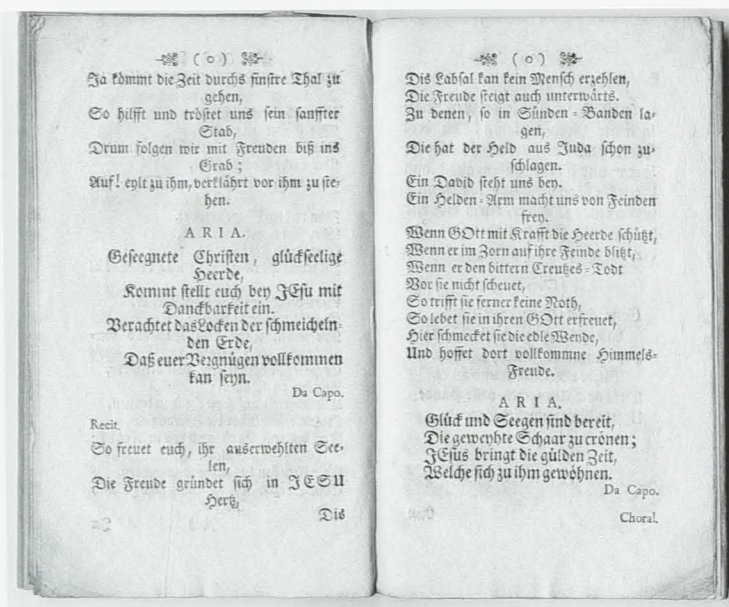 ( o )
Ja kömmt die Zeit durchs finstre Thal zu
gehen,
So hilfft und tröstet uns sein sanffter
Stab,
Drum folgen wir mit Freuden biß ins
Grab;
Auf! eylt zu ihm, verklährt vor ihm zu ste-
hen.
ARIA.
Geseegnete Christen, glückseelige
Heerde,
Kommt stellt euch bey JEsu mit
Danckbarkeit ein.
Verachtet das Locken der schmeicheln-
den Erde,
Daß euer Vergnügen vollkommen
kan seyn.
Da Capo.
Recit.
So freuet euch, ihr auserwehlten See-
len,
Die Freude gründet sich in JESU
Hertz,
Dis
( o )
Dis Labsal kan kein Mensch erzehlen,
Die Freude steigt auch unterwärts.
Zu denen, so in Sünden-Banden la-
gen,
Die hat der Held aus Juda schon zu-
schlagen.
Ein David steht uns bey.
Ein Helden-Arm macht uns von Feinden
frey.
Wenn GOtt mit Krafft die Heerde schützt,
Wenn er im Zorn auf ihre Feinde blitzt,
Wenn er den bittern Creutzes-Todt
Vor sie nicht scheuet,
So trifft sie ferner keine Noth,
So lebet sie in ihren GOtt erfreuet,
Hier schmecket sie die edle Weyde,
Und hoffet dort vollkommne Himmels-
Freude.
ARIA.
Glück und Seegen sind bereit,
Die geweyhte Schaar zu crönen;
JEsus bringt die gülden Zeit,
Welche sich zu ihm gewöhnen.
Da Capo.
Choral.